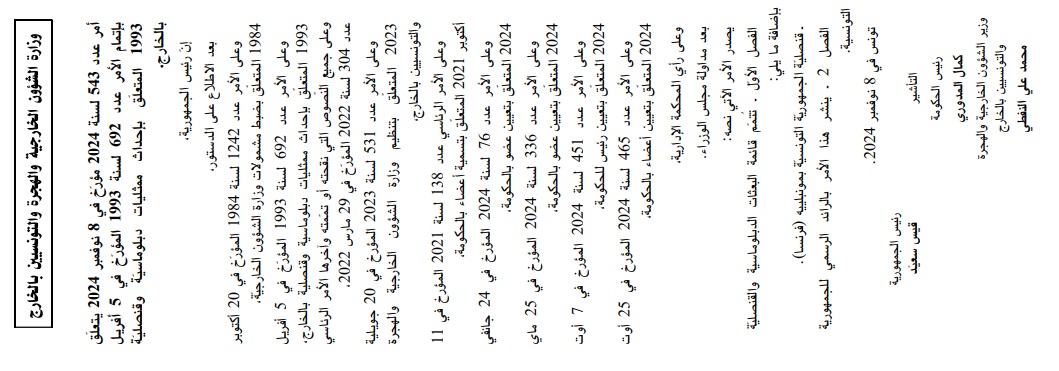 وزارة الشؤون الخارجية والهجرة والتونسيين بالخارج
أمر عدد 543 لسنة 2024 مؤرّخ في 8 نوفمبر 2024 يتعلّق
بإتمام الأمر عدد 692 لسنة 1993 المؤرّخ في 5 أفريل
1993 المتعلّق بإحداث ممثليات دبلوماسيّة وقنصليّة
بالخارج.
إنّ رئيس الجمهورية،
بعد الاطلاع على الدستور،
وعلى الأمر عدد 1242 لسنة 1984 المؤرّخ في 20 أكتوبر
1984 المتعلّق بضبط مشمولات وزارة الشؤون الخارجيّة،
وعلى الأمر عدد 692 لسنة 1993 المؤرخ في 5 أفريل
1993 المتعلّق بإحداث ممثليات دبلوماسية وقنصلية بالخارج،
وعلى جميع النّصوص التي نقحته أو تمّمته وآخرها الأمر الرئاسي
عدد 304 لسنة 2022 المؤرّخ في 29 مارس 2022،
وعلى الأمر عدد 531 لسنة 2023 المؤرخ في 20 جويلية
2023 المتعلّق بتنظيم وزارة الشؤون الخارجية والهجرة
والتونسيين بالخارج،
وعلى الأمر الرئاسي عدد 138 لسنة 2021 المؤرخ في 11
أكتوبر 2021 المتعلّق بتسمية أعضاء بالحكومة،
وعلى الأمر عدد 76 لسنة 2024 المؤرخ في 24 جانفي
2024 المتعلّق بتعيين عضو بالحكومة،
وعلى الأمر عدد 336 لسنة 2024 المؤرخ في 25 ماي
2024 المتعلّق بتعيين عضو بالحكومة،
وعلى الأمر عدد 451 لسنة 2024 المؤرخ في 7 أوت
2024 المتعلّق بتعيين رئيس للحكومة،
وعلى الأمر عدد 465 لسنة 2024 المؤرخ في 25 أوت
2024 المتعلّق بتعيين أعضاء بالحكومة،
وعلى رأي المحكمة الإدارية،
بعد مداولة مجلس الوزراء.
يصدر الأمر الآتي نصه:
الفصل الأوّل ـ تُتمّم قائمة البعثات الدبلوماسية والقنصليّة
بإضافة ما يلي:
ـ قنصليّة الجمهوريّة التونسيّة بمونبلييه (فرنسا).
الفصل 2 ـ ينشر هذا الأمر بالرائد الرسمي للجمهورية
التونسية.
تونس في 8 نوفمبر 2024.
رئيس الجمهورية
قيس سعيّد
التأشير
رئيس الحكومة
كمال المدوري
وزير الشؤون الخارجية والهجرة
والتونسيين بالخارج
محمد علي النفطي